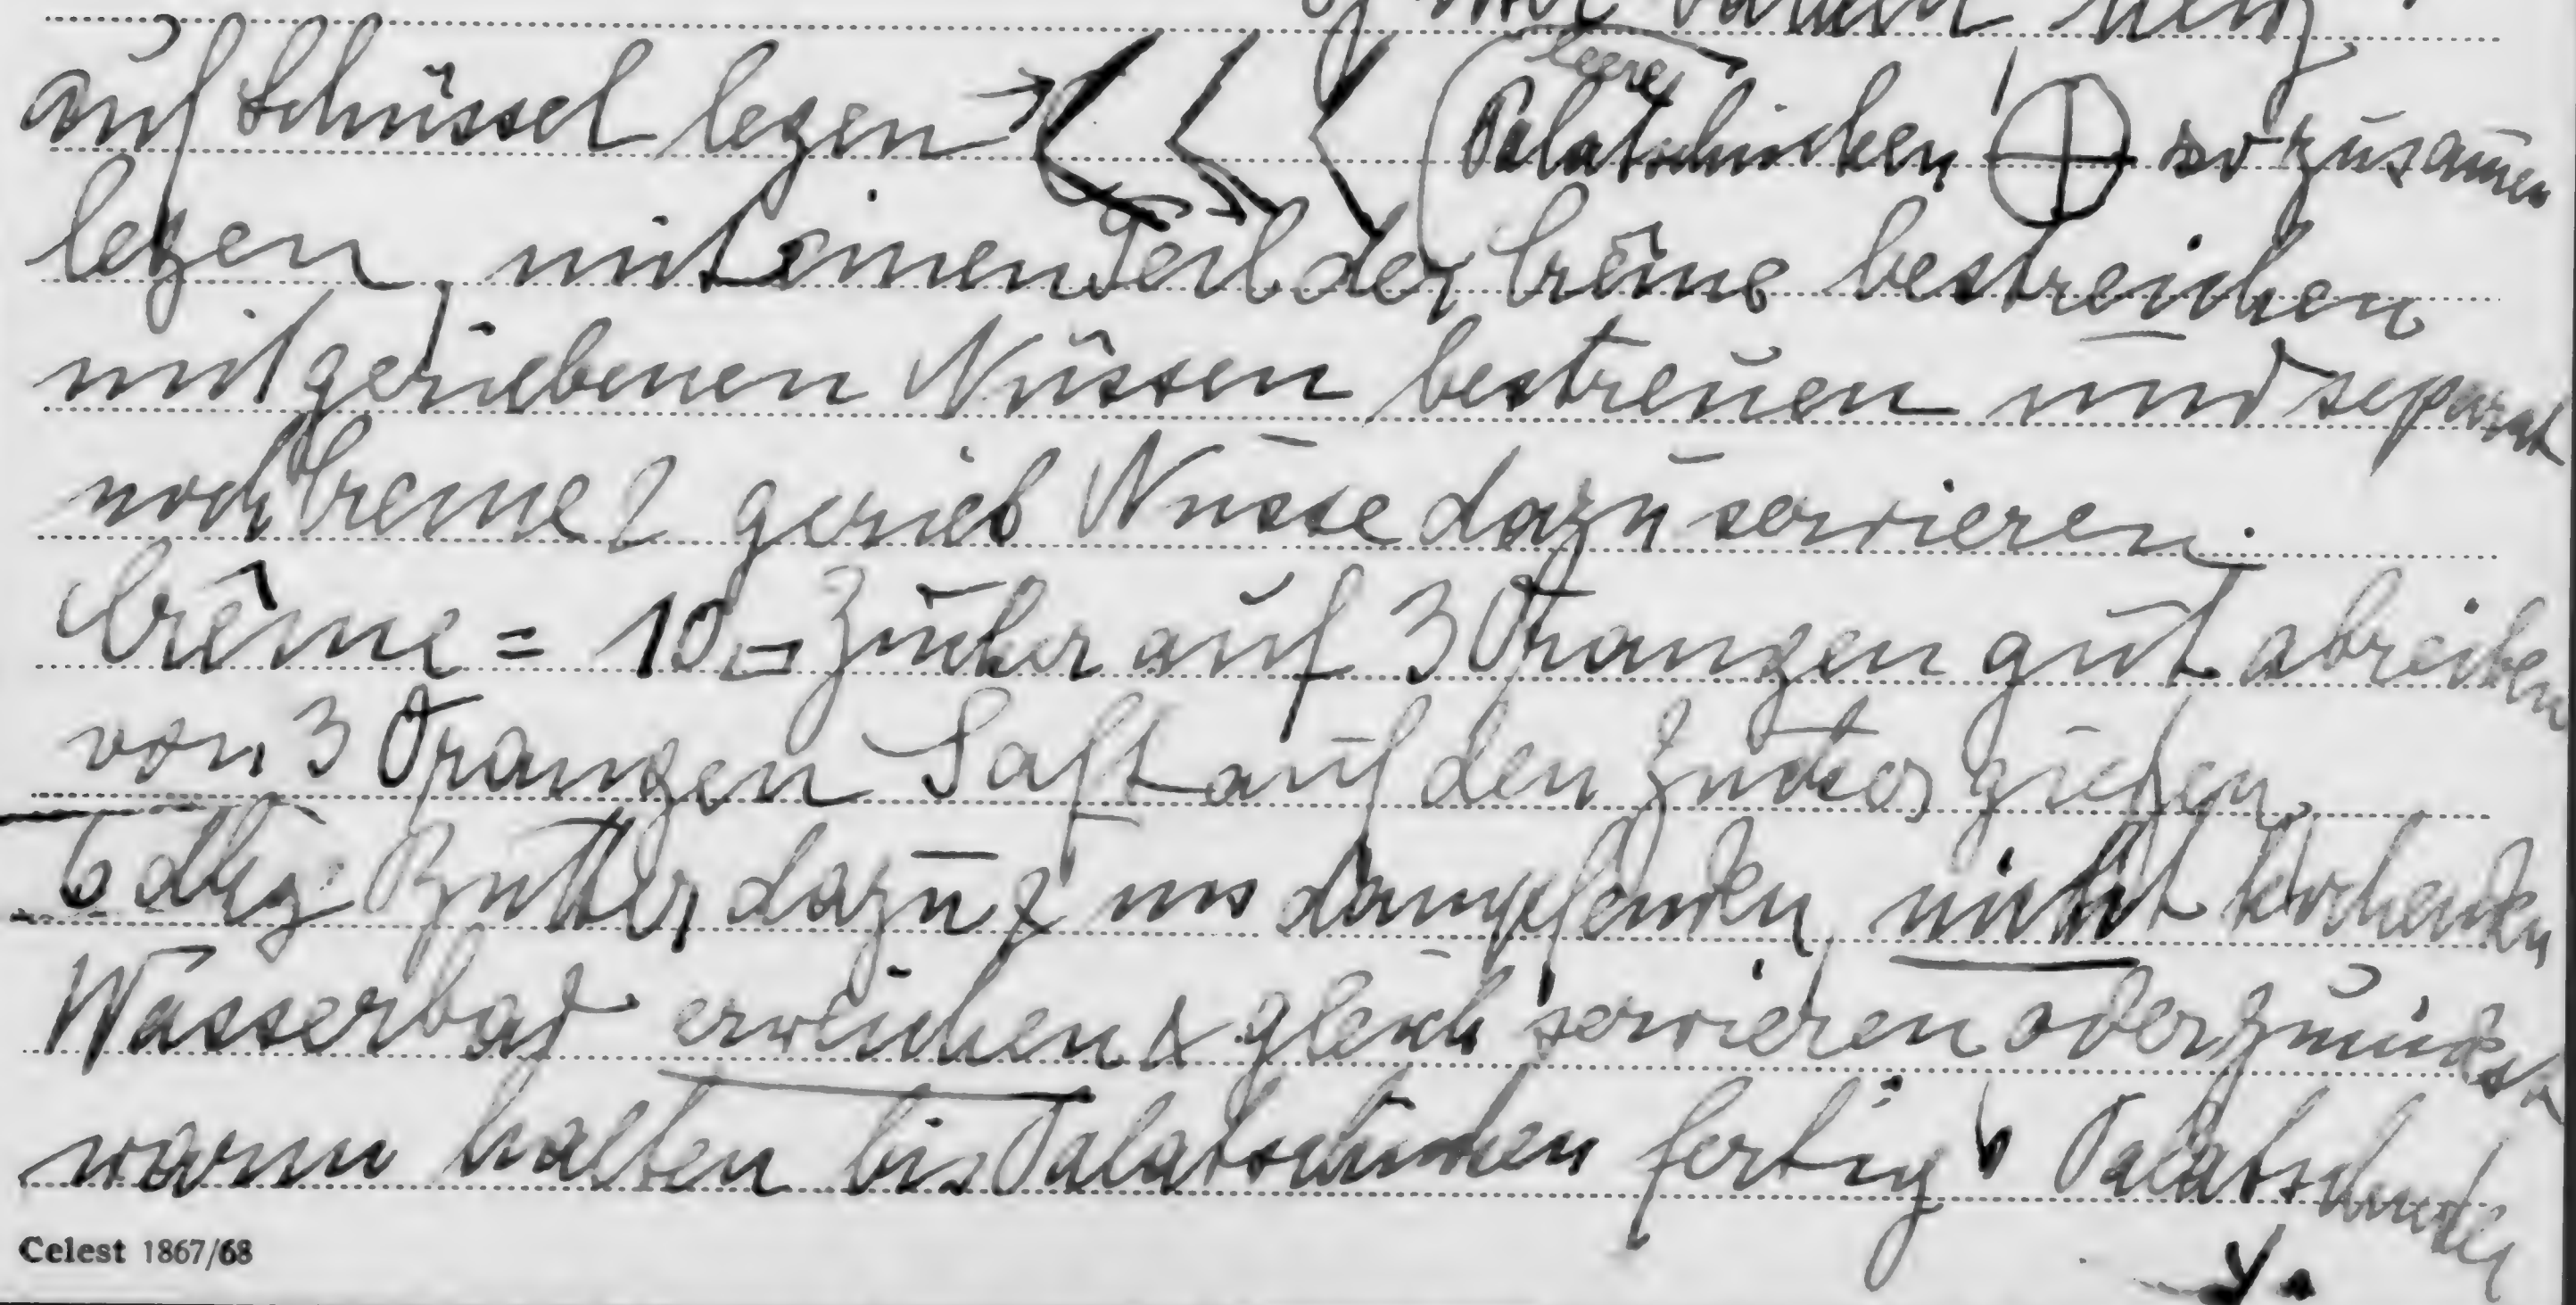 auf Schüssel legen → leere Palatschinken so zusammen
legen, mit einen Teil der Crême bestreichen
mit geriebenen Nüssen bestreuen und separat
noch Creme & gerieb Nüsse dazu servieren.
Crême = 10 Zucker auf 3 Orangen gut abreiben
von 3 Orangen Saft auf den Zucker gießen,
6 dkg Butter dazu & ins dampfenden, nicht kochenden
Wasserbad erweichen & gleich servieren oder
warm halten bis Palatschinken fertig Palatschinken
Celest 1867/68